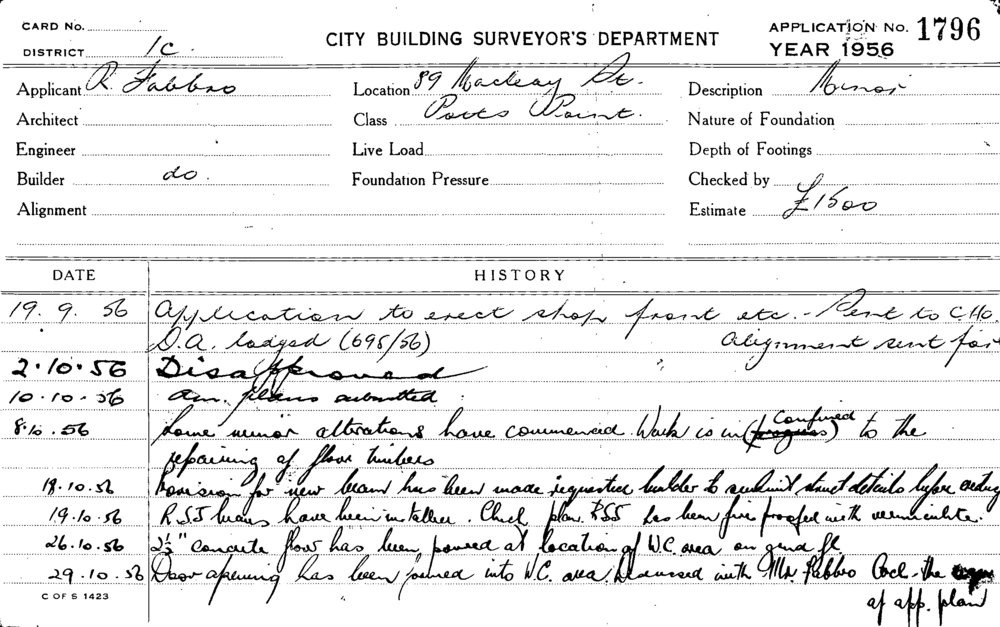 CARD No.
DISTRICT 1C.
CITY BUILDING SURVEYOR'S DEPARTMENT
APPLICATION No. 1796
YEAR 1956
Applicant R. Fabbro
Location 89 Macleay St.
Description Minor
Architect
Class Potts Point.
Nature of Foundation
Engineer
Live Load
Depth of Footings
Builder do.
Foundation Pressure
Checked by
Alignment
Estimate £1500
DATE HISTORY
19. 9. 56 Application to erect shop front etc. - Sent to C.Ho.
D.A. lodged (695/56) Alignment sent for
2.10.56 Disapproved
10.10.56 Am. plans submitted
8.10.56 Some minor alterations have commenced. Work is in (progress) confined to the
repairing of floor timbers
18.10.56 Provision for new beam has been made requested builder to submit struct details before
19.10.56 R.S.J beams have been installed. Check plan. RSJ has been fire proofed with vermiculite.
26.10.56 2½" concrete floor has been poured at location of W.C. area on grnd fl
29.10.56 Door opening has been formed into W.C. area. Discussed with Mr Fabbro the
of app. plan
C OF S 1423